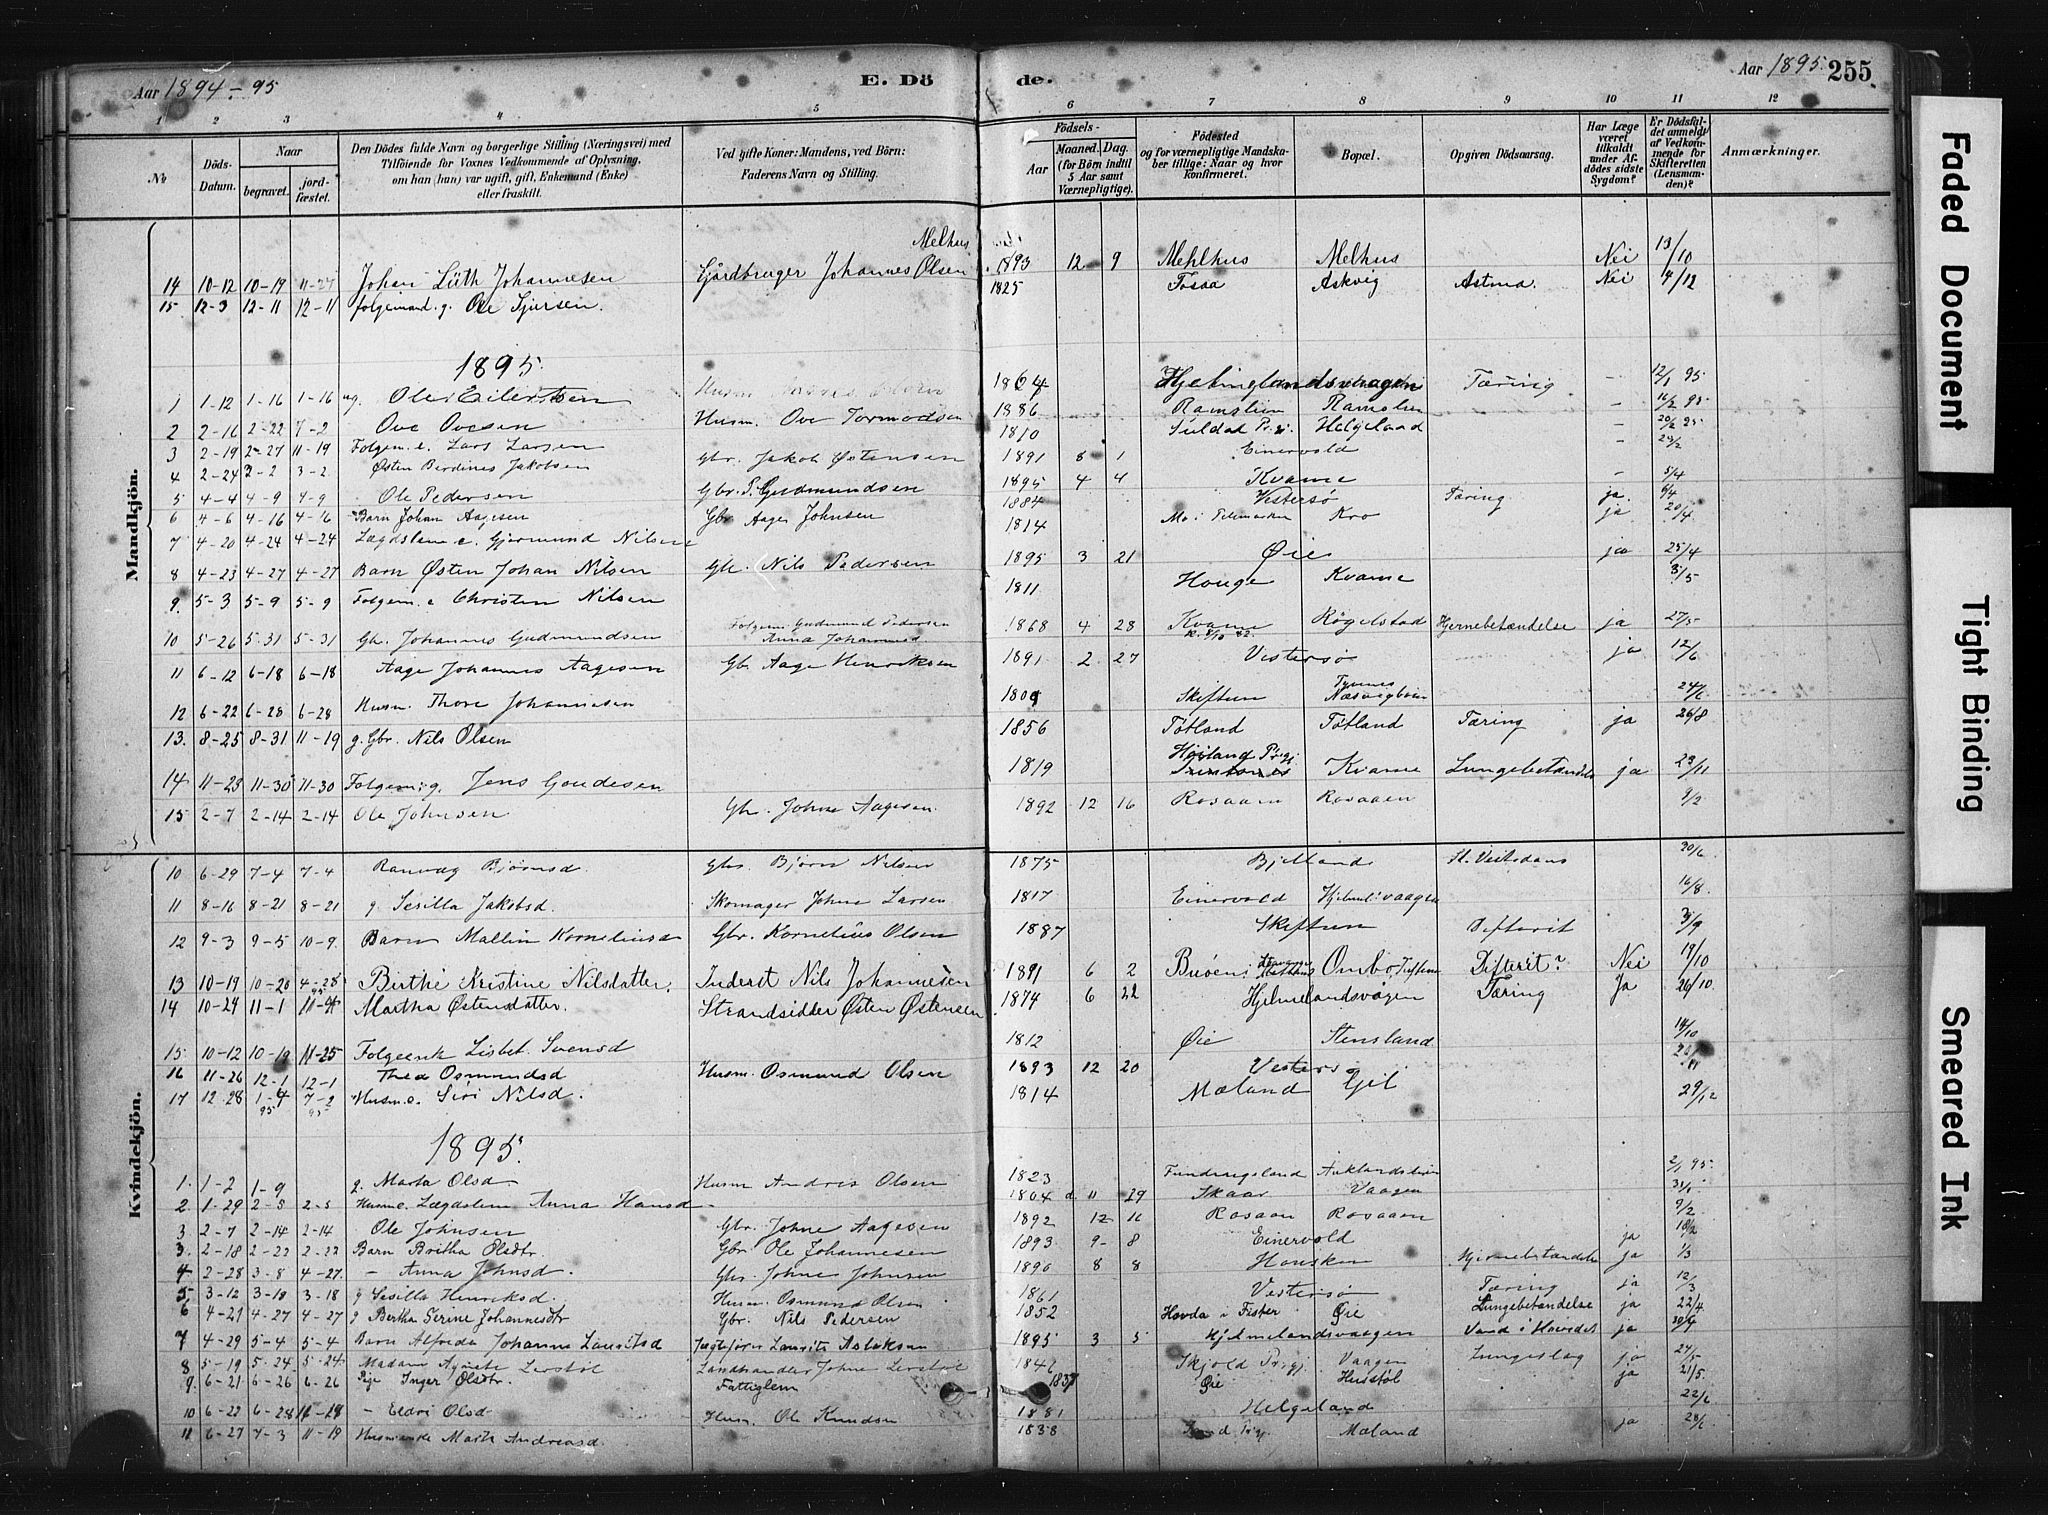 Aar 1894-95 E. Döde. Aar 1895 255
1 2 3 4 5 6 7 8 9 10 11 12
No
Döds-Datum.
Naar
begravet. jord-fæstet.
Den Dödes fulde Navn og borgerlige Stilling (Næringsvei) med
Tilföiende for Voxnes Vedkommende af Oplysning,
om han (hun) var ugift, gift, Enkemand (Enke)
eller fraskilt.
Ved gifte Koner: Mandens, ved Börn:
Faderens Navn og Stilling.
Födsels-
Aar Maaned. Dag.
(for Börn indtil
5 Aar samt
Værnepligtige).
Födested
og for værnepligtige Mandska-
ber tillige: Naar og hvor
konfirmeret.
Bopæl.
Opgiven Dödsaarsag.
Har Læge
været
tilkaldt
under Af-
dödes sidste
Sygdom?
Er Dödsfal-
det anmeldt
af Vedkom-
mende for
Skifteretten
(Lensman-
den)?
Anmærkninger.
Mandkjön.
14 10-12 10-19 11-27 Johan Lüth Johannesen Gårdbruger Johannes Olsen Melhus 1893 12 9 Mehlhus Melhus Nei 13/10
15 12-3 12-11 12-11 folgemand g. Ole Sjursen. 1825 Fosaa Askvig Astma. Nei 4/12
1895.
1 1-12 1-16 1-16 ug. Ole Eilertsen Husm. 1864 Hjelmelandsvaagen Tæring - 12/1 95
2 2-16 2-22 7-2 Ove Ovesen Husm. Ove Tormodsen 1886 Ramslien Ramslien - 16/2 95
3 2-19 2-27 11-19 Folgem. e. Lars Larsen 1810 Suldal Prgj. Helgeland - 20/2 95
4 2-24 2-2 3-2 Østen Berdines Jakobsen Gbr. Jakob Østensen 1891 8 1 Einervold 24/2
5 4-4 4-9 4-9 Ole Pedersen Gbr. P. Gudmundsen 1895 4 4 Kvame - 5/4
6 4-6 4-16 4-16 Barn Johan Aagesen Gbr Aage Johnsen 1884 Vestersø Tæring ja. 8/4
7 4-20 4-24 4-24 Lægdslem e. Gjermund Nilsen 1814 Mo i Telemarken Kro ja 20/4
8 4-23 4-27 4-27 Barn Østen Johan Nilsen Gbr. Nils Pedersen 1895 3 21 Øie ja 25/4
9. 5-3 5-9 5-9 Folgem. e Christen Nilsen 1811 Houge Kvame 3/5
10 5-26 5-31 5-31 Gbr. Johannes Gudmundsen Folgem. Gudmund Pedersen Anna Johannesd 1868 4 28 Kvame Røgelstad Hjernebetændelse ja 27/5
11 6-12 6-18 6-18 Aage Johannes Aagesen Gbr Aage Henriksen 1891 2 27 Vestersø ja 12/6
12 6-22 6-28 6-28 Husm. Thore Johannesen 1809 Skiftun Tynnes Næsvigbøen 24/6
13. 8-25 8-31 11-19 g. Gbr. Nils Olsen 1856 Tøtland Tøtland Tæring ja 26/8
14 11-23 11-30 11-30 Folgem. g. Jens Goudesen 1819 Høiland Prgj. Kvame Lungebetændelse ja 23/11
15 2-7 2-14 2-14 Ole Johnsen Gbr. Johne Aagesen. 1892 12 16 Rosaaen Rosaaen 9/2
Kvindekjön.
10 6-29 7-4 7-4 Ranvæg Bjørnsd. Gbr. Bjørn Nilsen 1875 Bjelland St. Veitsdans 30/6
11 8-16 8-21 8-21 g Sesilla Jakobsd. Skomager Johne Larsen 1817 Einervold Hjelmel.vaagen 16/8
12 9-3 9-5 10-9. Barn Mallin Kornelinsd Gbr. Kornelius Olsen 1887 Skiftun Difterit 3/9
13 10-19 10-20 4-28 95 Birthe Kristine Nilsdatter. Inderst Nils Johannesen 1891 6 2 Buøen Ombo, Difterit? Nei 19/10
14 10-24 11-1 11-4 Martha Østensdatter. Strandsidder Østen Østensen 1874 6 22 Hjelmelandsvågen Tæring Ja 26/10.
15 10-12 10-19 11-25 Folgeenk Lisbet Svensd 1812 Øie Stensland 14/10
16 11-26 12-1 12-1 Thea Osmundsd Husm. Osmund Olsen 1893 12 20 Vestersø 26/11
17 12-28 1-4 95 7-2 95 Husm.e. Siri Nilsd. 1814 Mæland Gjil 29/12
1895.
1. 1-2 1-9 g. Marta Olsd Husm Andres Olsen 1823 Fundingsland Auklandsbøen 2/1 95
2 1-29 2-5 2-5 Husm.e. Lægdslem Anna Hansd - 1804 d. 11 29 Skaar Vaagen 31/1
3 2-7 2-14 2-14 Ole Johnsen Gbr. Johne Aagesen 1892 12 16 Rosaaen Rosaaen 9/2
3. 2-18 2-22 2-22 Barn Britha Olsdtr. Gbr. Ole Johannesen 1893 9- 8 Einervold ja 18/2
4 2-28 3-8 4-27. - Anna Johnsd. Gbr. Johne Johnsen 1890 8 8 Housken Hjernebetændelse ja 1/3
5. 3-12 3-18 3-18 g Sesilla Henriksd. Husm. Osmund Olsen 1861 Vestersø Tæring ja 12/3
6 4-21 4-27 4-27 g Bertha Serine Johannesdtr Gbr. Nils Pedersen 1852 Hovda i Fister Øie Lungebetændelse ja 22/4
7 4-29 5-4 5-4 Barn Alfrida Johanna Lauritsd Jægtefører Laurits Aslaksen 1895 3 5 Hjelmelandsvaagen Vand i Hovedet ja 30/4
8 5-19 5-24 5-24 Madam Agnete Lerstøl Landhandler Johne Lerstøl 184 Skjold Prgj. Vaagen Lungeslag ja 24/5
9. 6-21 6-26 6-26 Pige Inger Olsdtr. Fattiglem 1837 Øie Husstøl ja 21/5
10 6-22 6-28 11-18 - Eldri Olsd Husm. Ole Knudsen 1881 Helgeland 22/6
11 6-27 7-3 11-19 Husmienke Marta Andreasd. 1838 Prgj. Mæland ja 28/6
Faded Document
Tight Binding
Smeared Ink